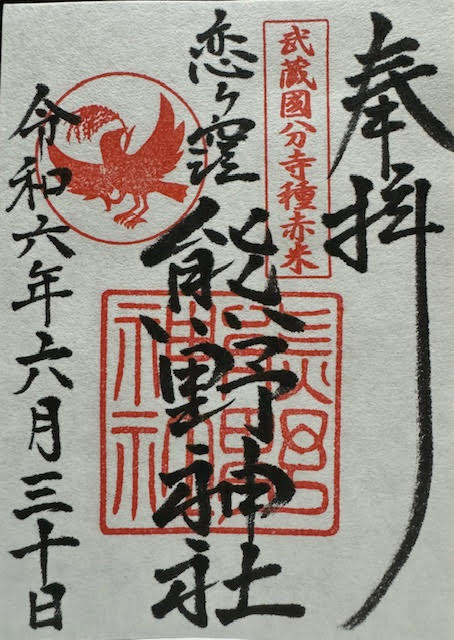 奉拝
武蔵國分寺種赤米
恋ヶ窪
熊野神社
令和六年六月三十日